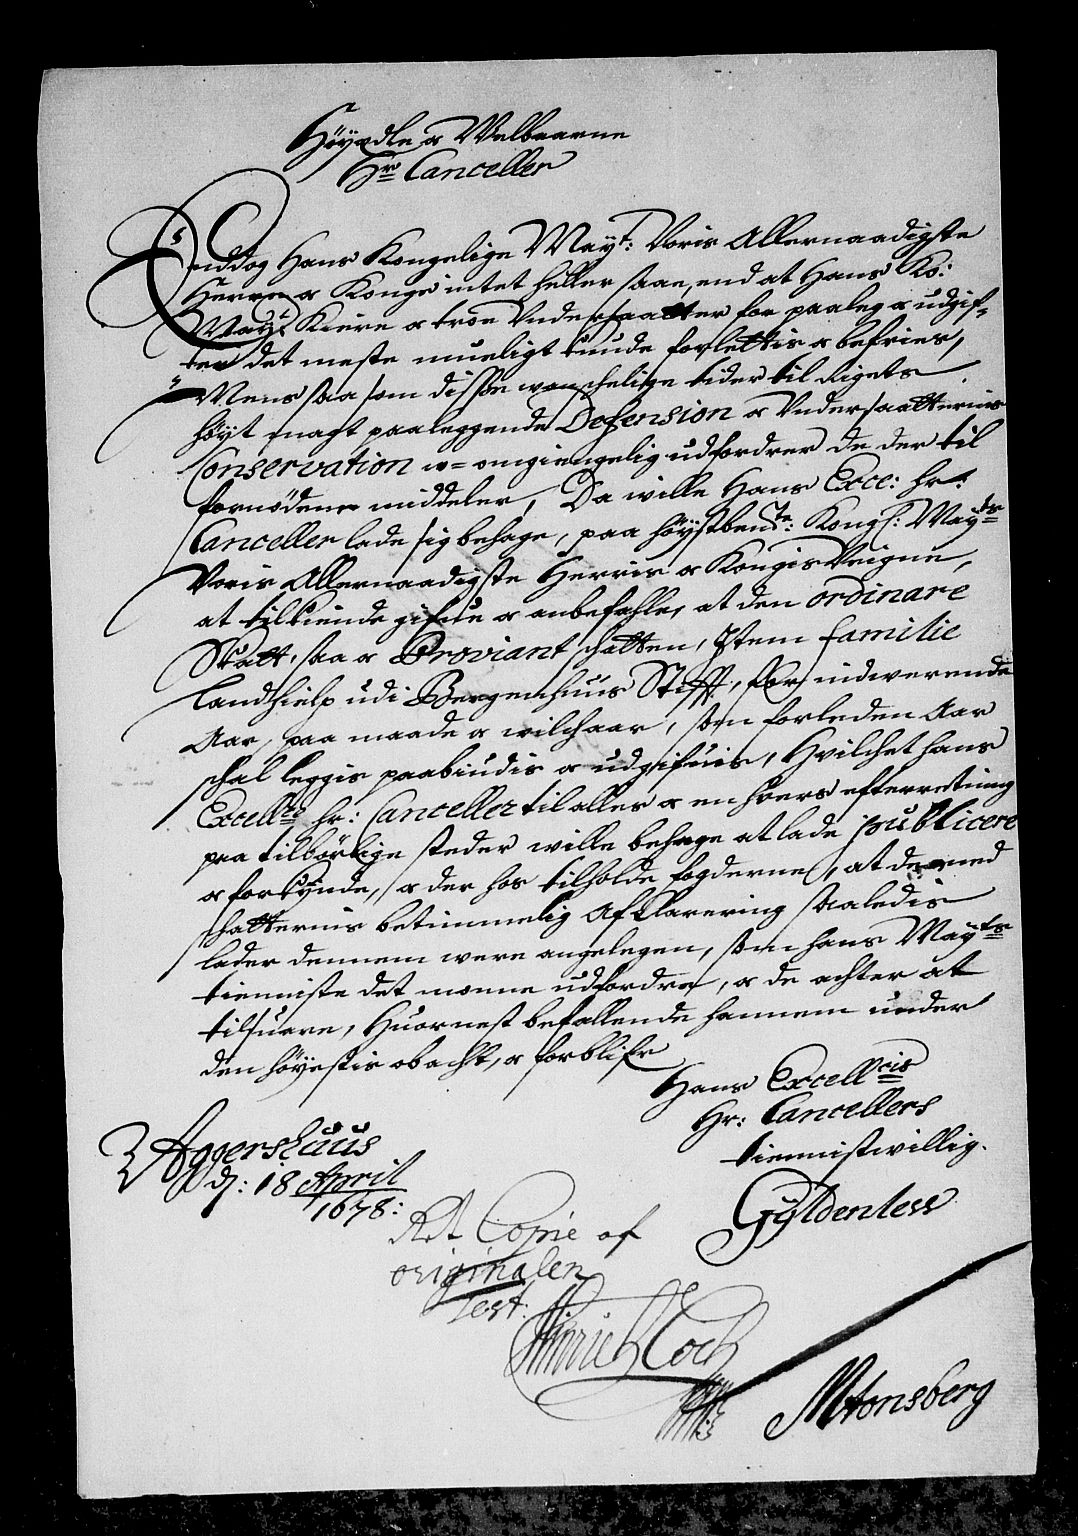 Höyædle oc Velbaarne
Hr Canceller
Enddog Hans Kongelige Mayt: Voris Allernaadigste
Herre oc Konge intet heller saae, end at Hans Ko:
Mayt: Kiere oc troe Undersaatter for paaleg oc udgif-
ter det meste mueligt kunde forlettis oc befries,
Mens saa som disse wanschelige tider til Rigets
höyt magt paaleggende Defension oc Undersaatternis
Conservation u-omgiengelig udfordrer de der til
fornödene mideler, Da wille Hans Exce: hr:
Canceller lade sig behage, paa höystbente: Kongl: Mayts
Voris Allernaadigste Herris oc Kongis Veigne,
at tilkiende gifue oc anbefahle, at den ordinare
Skatt, saa oc Proviant schatten, Item familie
landhielp udi Bergenhuus Stifft, for indwerende
Aar, paa maade oc wilchaar, som forleden Aar
schal leggis paabiudis oc udgifuis, Hvilchet hans
Excellce hr: Canceller til alles oc en hvers efterretning
paa tilbörlige steder wille behage at lade publicere
oc forkynde, oc der hos tilholde fogderne, at de med
schatternis betimmelig Afklarering saaledis
lader dennem were angelegen, som hans Mayts
tienniste det monne udfordre, oc de achter at
tilsuare, Huornest befallende hannem under
den höyestis obacht, oc forblifr
Hans Excellcis
Hr: Cancellers
tiennistwillig.
Aggershuus
d: 18 April
1678:
Gyldenlew
Ret Copie af
originalen
Test:
Hinrich Coch
MTonsberg